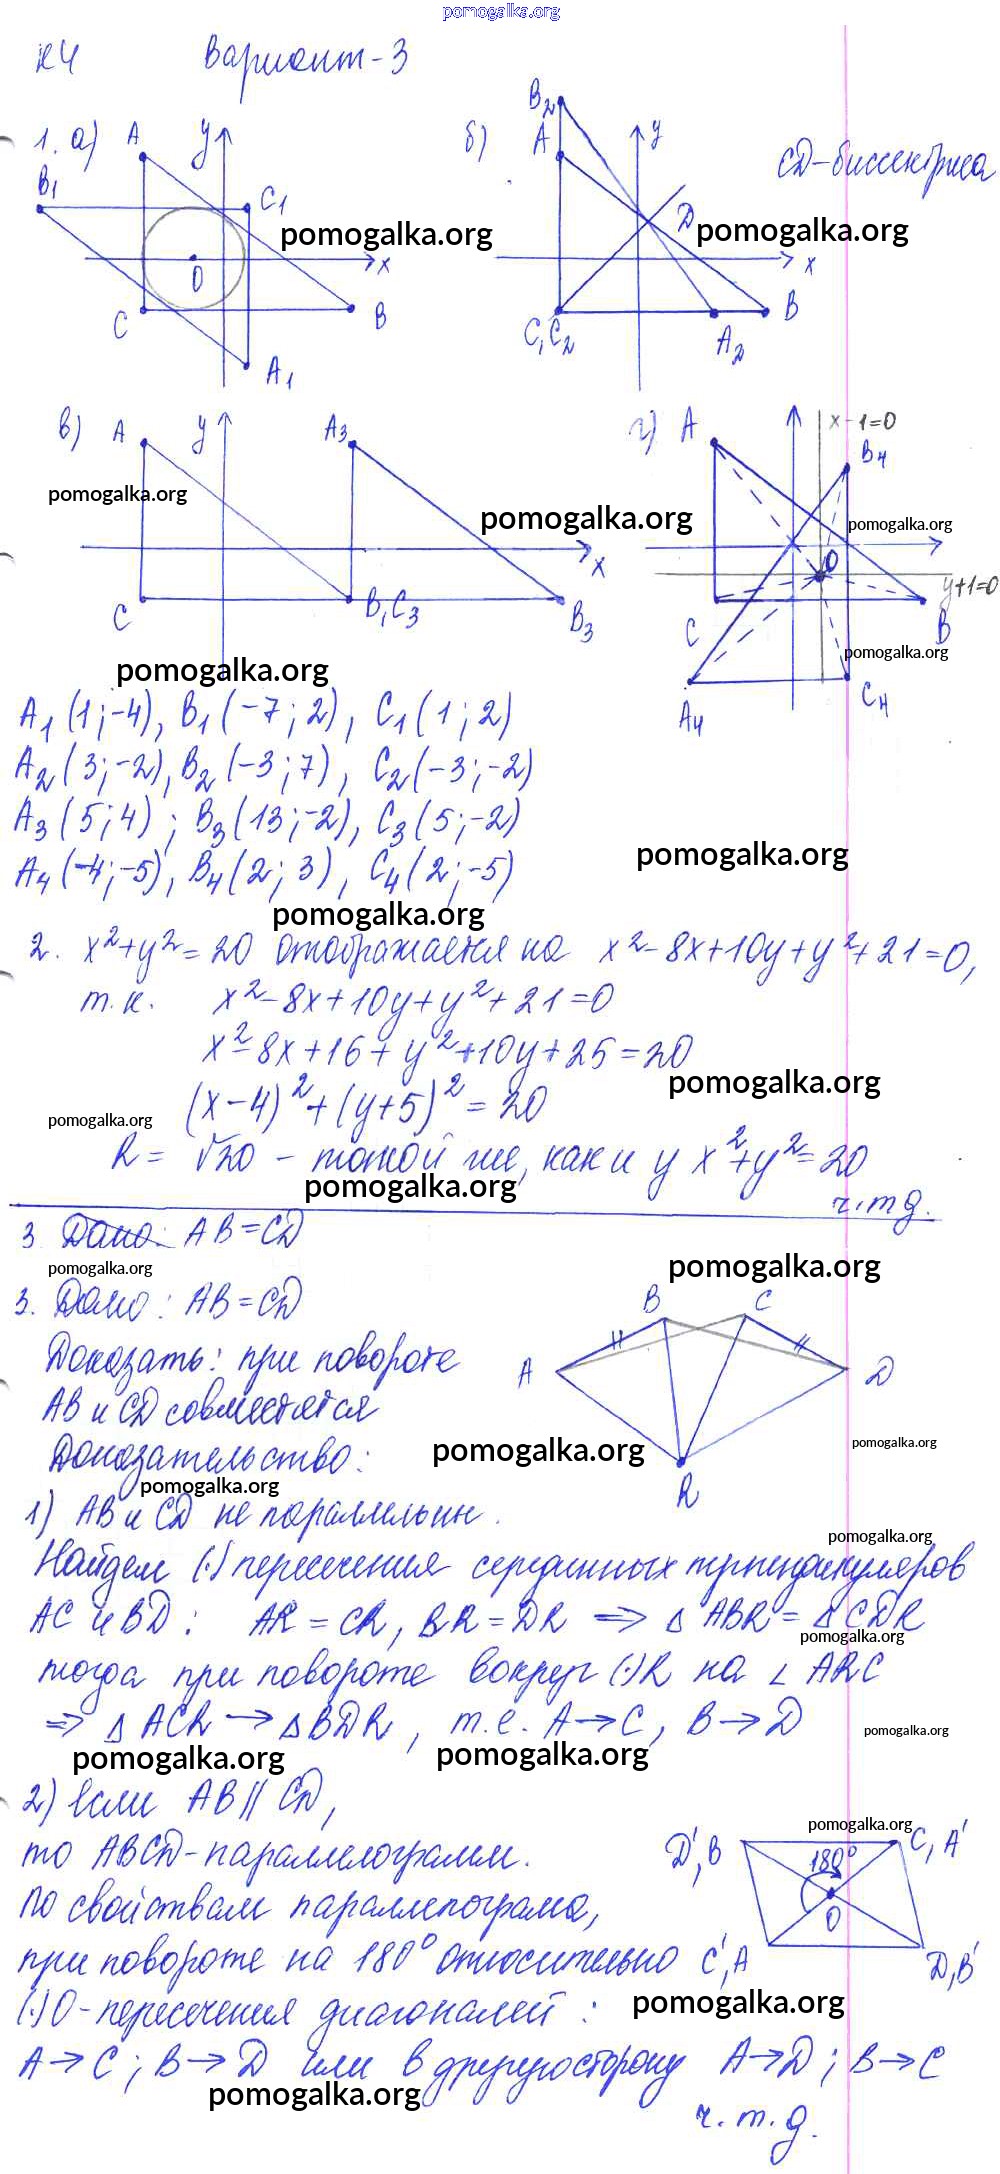 pomogalka.org
К4 Вариант-3
1. а) A y B1 C1 x O C B A1
б) B2 A y D x B C,C2 A2
CD-биссектриса
pomogalka.org pomogalka.org
в) A y A3 x C B,C3 B3
г) A x-1=0 B4 O y+1=0 C B A4 C4
pomogalka.org pomogalka.org pomogalka.org
pomogalka.org pomogalka.org
A1(1;-4), B1(-7;2), C1(1;2)
A2(3;-2), B2(-3;7), C2(-3;-2)
A3(5;4); B3(13;-2), C3(5;-2)
pomogalka.org
A4(-4;-5), B4(2;3), C4(2;-5)
pomogalka.org
2. x²+y²=20 отображается на x²-8x+10y+y²+21=0,
т.к. x²-8x+10y+y²+21=0
x²-8x+16+y²+10y+25=20
pomogalka.org
(x-4)²+(y+5)²=20
pomogalka.org
R=√20 - такой же, как и у x²+y²=20
pomogalka.org
ч.т.д.
3 Дано: AB=CD
pomogalka.org pomogalka.org
3. Дано: AB=CD
Доказать: при повороте
AB и CD совместятся
Доказательство:
B C A D R
pomogalka.org pomogalka.org
pomogalka.org
1) AB и CD не параллельны.
pomogalka.org
Найдем (·) пересечения серединных перпендикуляров
AC и BD: AR=CR, BR=DR ⇒ △ABR=△CDR
pomogalka.org
тогда при повороте вокруг (·)R на ∠ARC
⇒ △ACR→△BDR, т.е. A→C, B→D
pomogalka.org
pomogalka.org pomogalka.org
2) Если AB∥CD,
pomogalka.org
то ABCD-параллелограмм.
D',B C,A' 180° O C',A D,B'
По свойствам параллелограма,
при повороте на 180° относительно
(·)O-пересечения диагоналей:
pomogalka.org
A→C; B→D или в другую сторону A→D; B→C
pomogalka.org
ч.т.д.